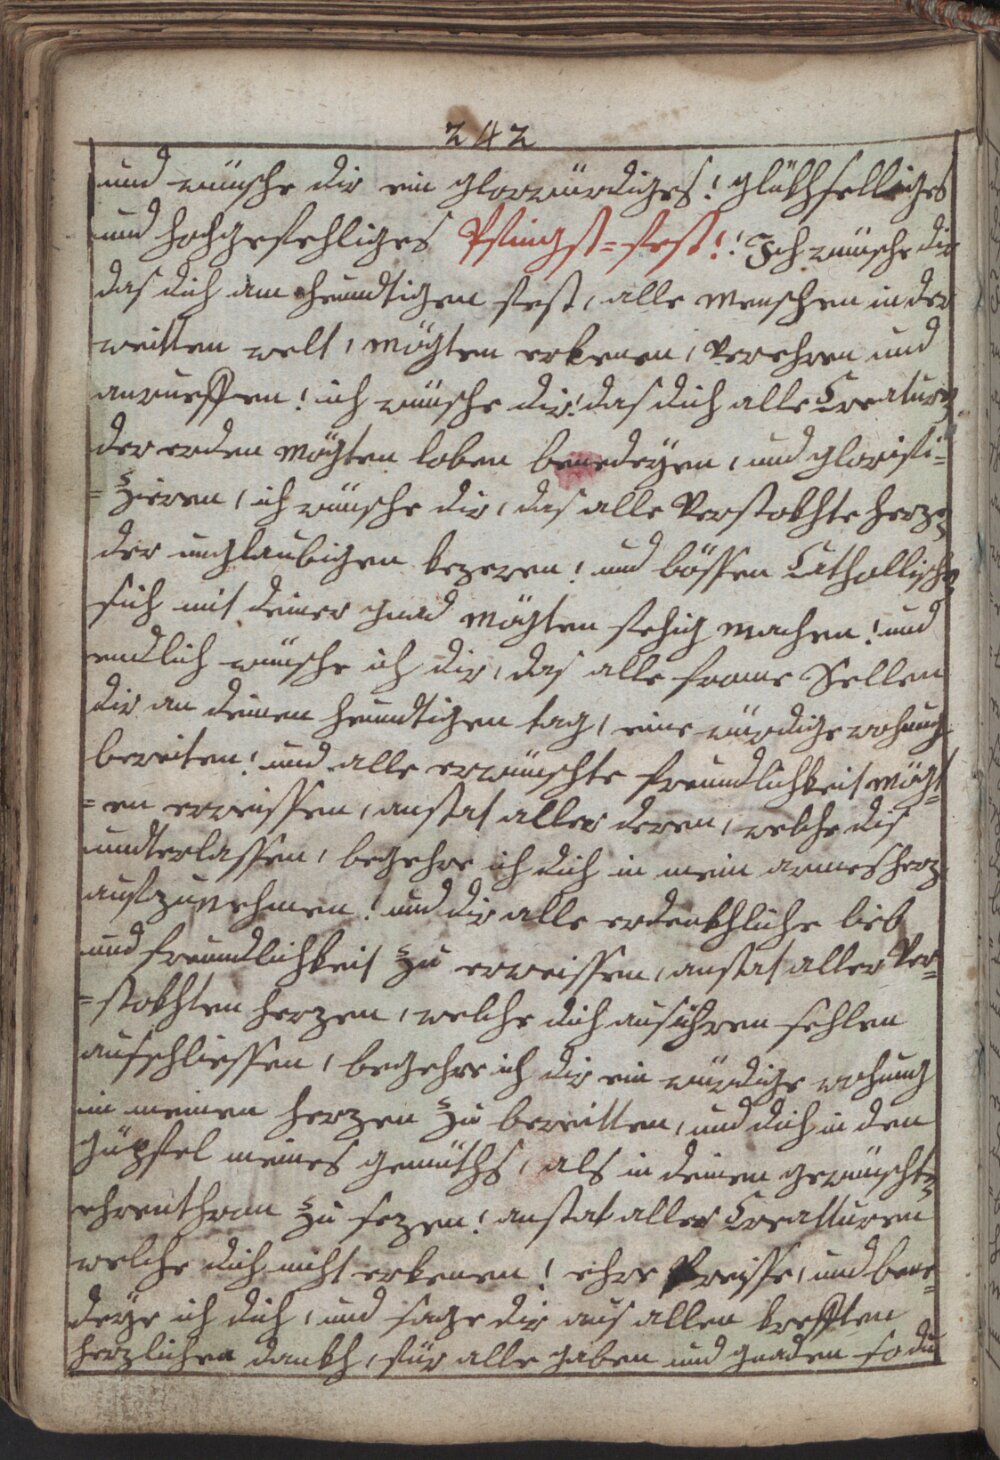 242
und wünsche dir ein glorwürdiges! glükhselliges
und hochgefehliges Pfingst=fest!! Ich wünsche dir
das dich am heundtigen fest, alle menschen in der
weitten welt, mögten erkenen, verehren und
anrueffen! ich wünsche dir! das dich alle Creaturen
der erden mögten loben benedeyen, und glorifi=
=zieren, ich wünsche dir, das alle verstokhte herzen
der unglaubigen kezeren! und bössen Catholischen
sich mit deiner gnad mögten fehig machen! und
endlich wünsche ich dir, das alle frome Sellen
dir an deinen heundtigen tag, eine würdige wohnung
bereiten! und alle erwünschte freundlichkeit mögt=
=en erweissen, anstat aller deren, welche dis
undterlassen, begehre ich dich in mein armes herz
aufzunehmen! und dir alle erdenkhliche lieb
und freundlichkeit zu erweissen, anstat aller ver=
=stokhten herzen, welche dich aus ihren sehlen
ausschliessen, begehre ich dir ein würdige wohung
in meinen herzen zu bereitten, und dich in den
güpfel meines gemüths, als in deinen gewünschten
ehrenthron zu sezen! anstat aller Creatturen
welche dich nicht erkenen! ehre Preisse, und bene=
deye ich dich, und sage dir aus allen krefften
herzlichen dankh, für alle gaben und gnaden so du